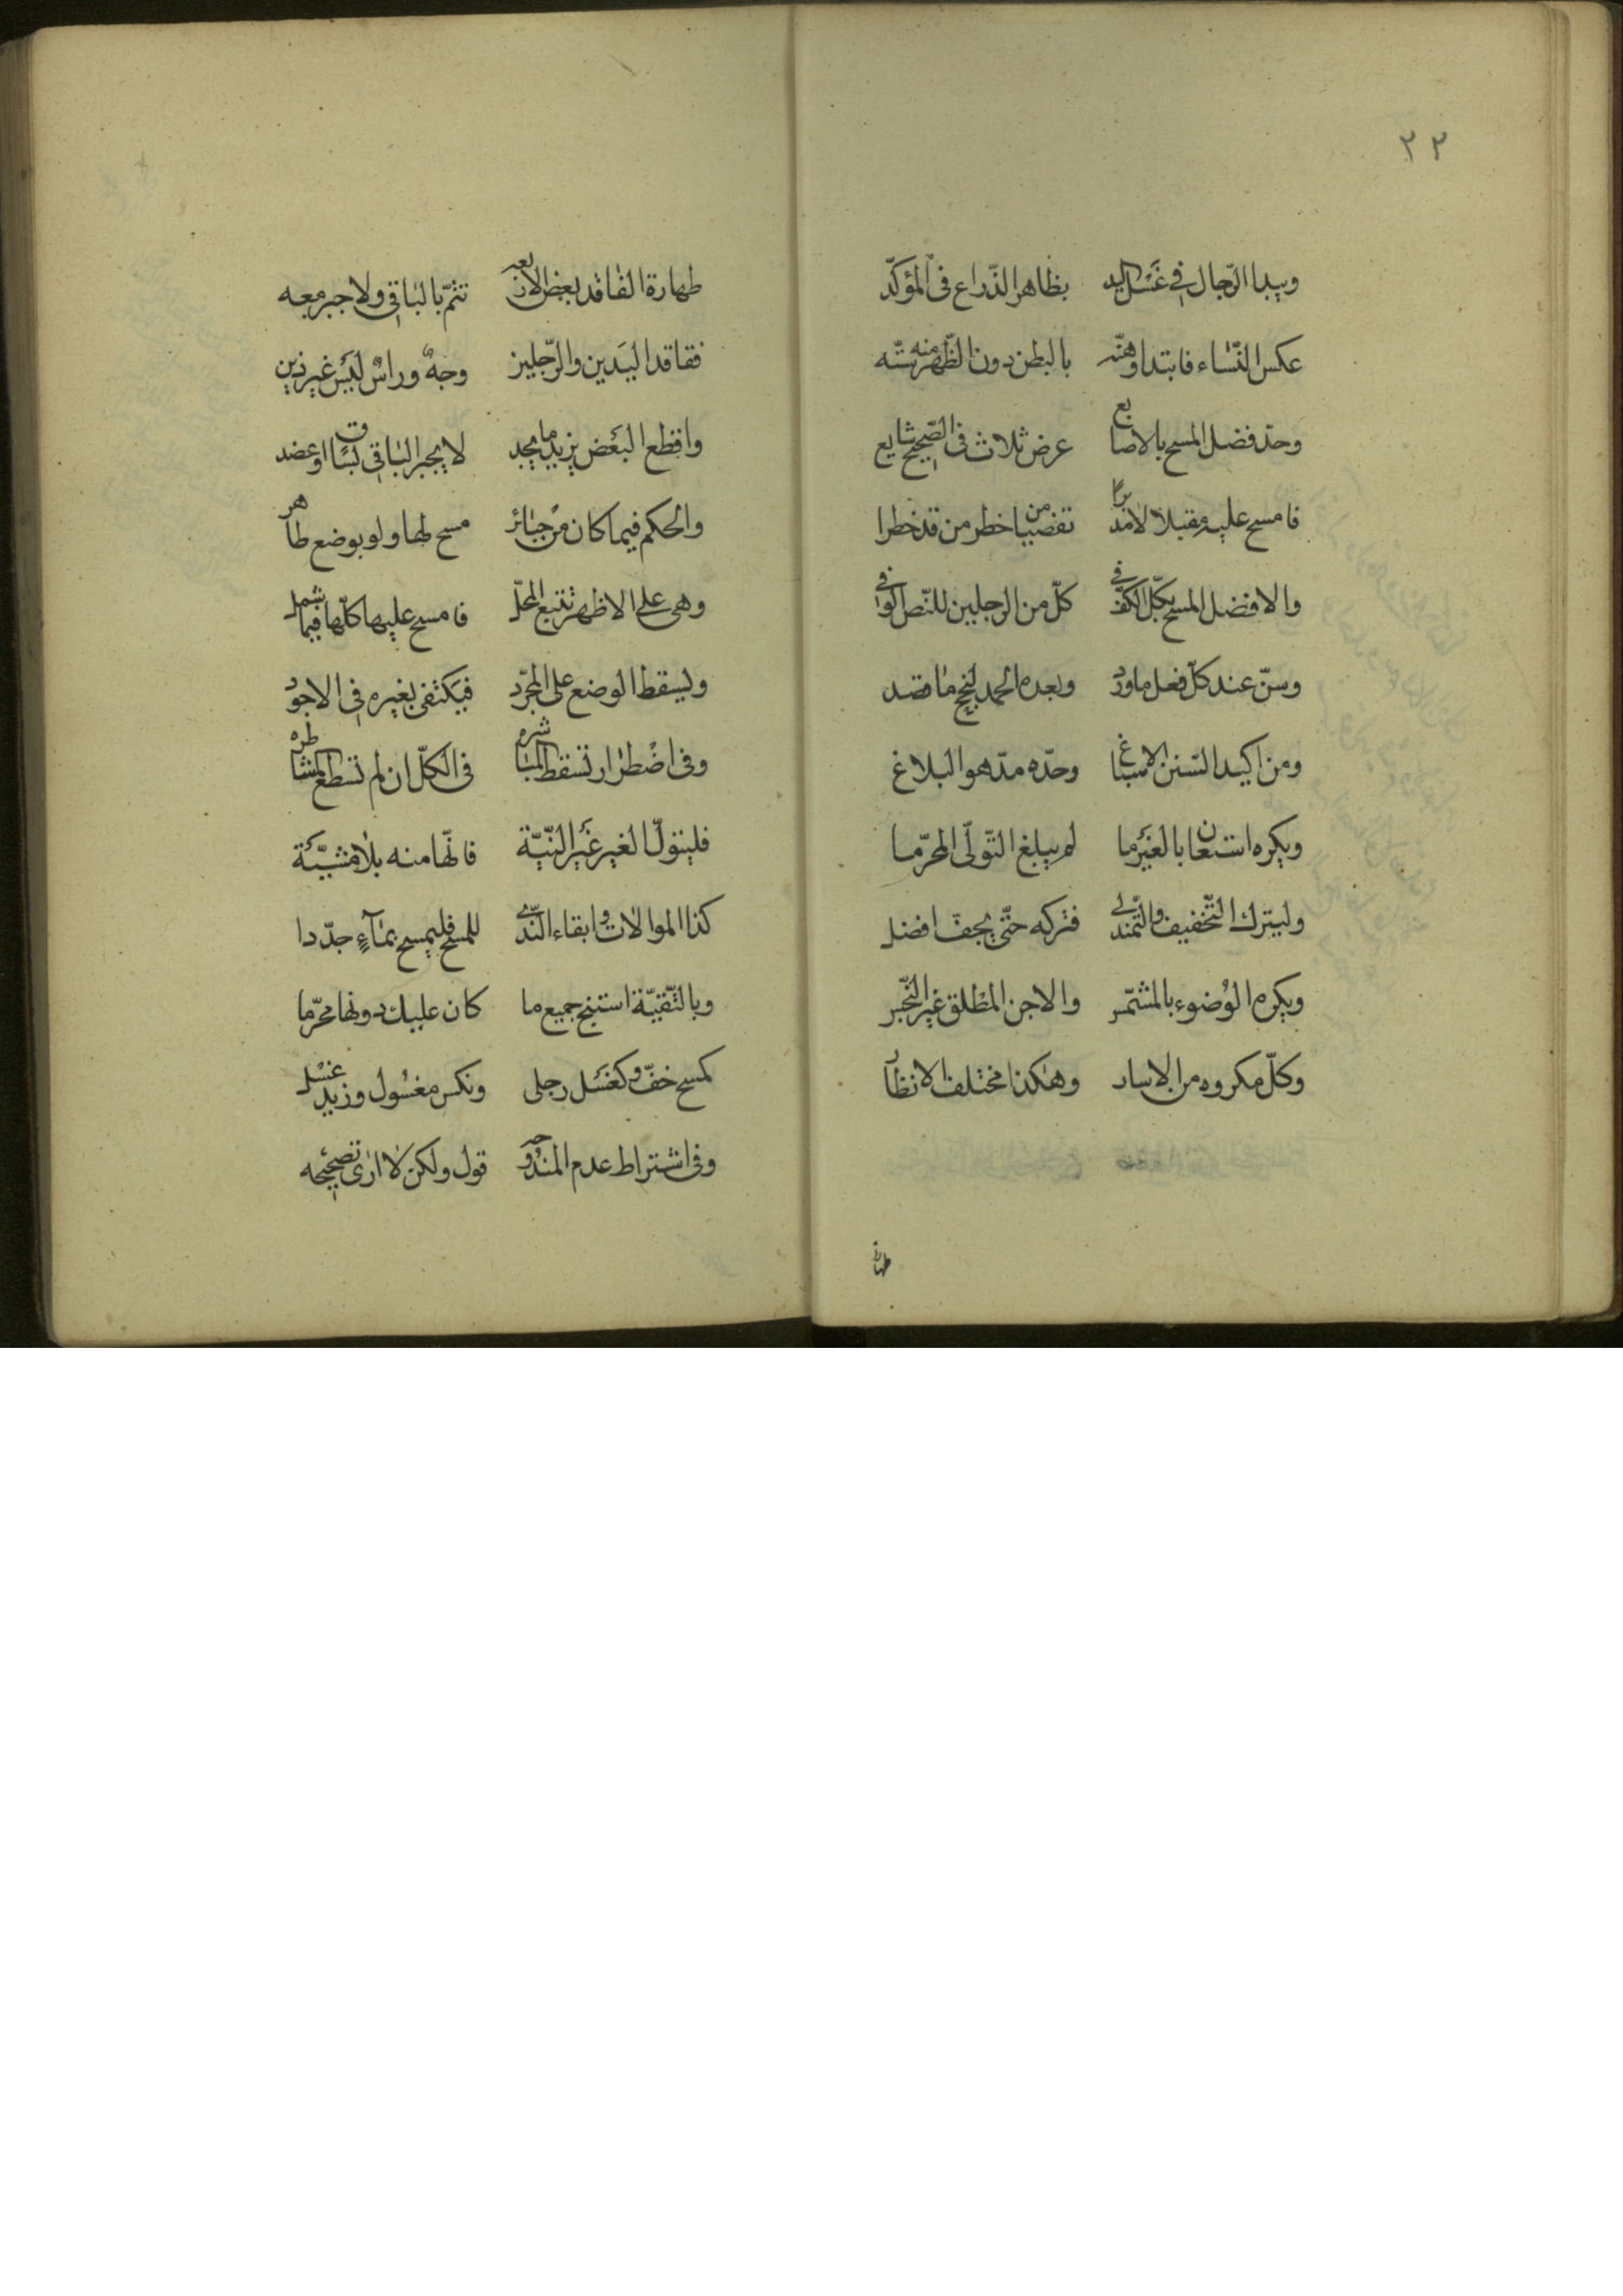 ٢٢
ويبدا الرّجال في غَسْل اليد بظاهر الذّراع في المؤكّد
عكس النّساء فابتداوهنّه بالبطن دون الظّهر منه سنّه
وحدّ فضل المسح بالاصابع عرض ثلاث في الصّحيح شايع
فامسح عليه مقبلا لا مدبرًا تفصّيا من خطر من قد خطرا
والافضل المسح بكلّ الكفّ في كلّ من الرجلين للنّص الوافي
وسنّ عند كلّ فعل ما ورد وبعده الحمد لنجح ما قصد
ومن اكيد السّنن الاسباغ وحدّه مدّ هو البلاغ
ويكره استعان بالغير ما لم يبلغ التّولّي المحرّما
وليترك التّخفيف والتّمندل فتركه حتّى يجفّ افضل
ويكره الوُضوء بالمشتمّس والاجن المطلق غير
وكلّ مكروه من الاسار وهكذا مختلف الانظار
طهارة
طهارة الفاقد بعض الاربعه تتمّ بالباقي ولا جبر معه
ففاقد اليدين والرّجلين وجهٌ وراسٌ ليس غير ذين
واقطع البعض يزيد ما يجد لا يجبر الباقي بساق او عضد
والحكم فيما كان من جبائر مسح لها ولو بوضع طاهر
وهي على الاظهر تتبع المحلّ فامسح عليها كلّها فيما شمل
وليسقط الوضع على المجرّد فيكتفى بغيره في الاجود
وفي اضطرار تسقط المباشره في الكلّ ان لم تسطع المشاطره
فليتولّ الغير غير النّيّة فانّها منه بلا مشيّئة
كذا الموالات وابقاء النّدى للمسح فليمسح بمآءٍ جدّدا
وبالتّقيّة استبح جميع ما كان عليك دونها محرّما
كمسح خفّ وكغسل رجلى ونكس مغسول وزيد غسل
وفي اشتراط عدم المندوحه قول ولكن لا ارى تصحيحه